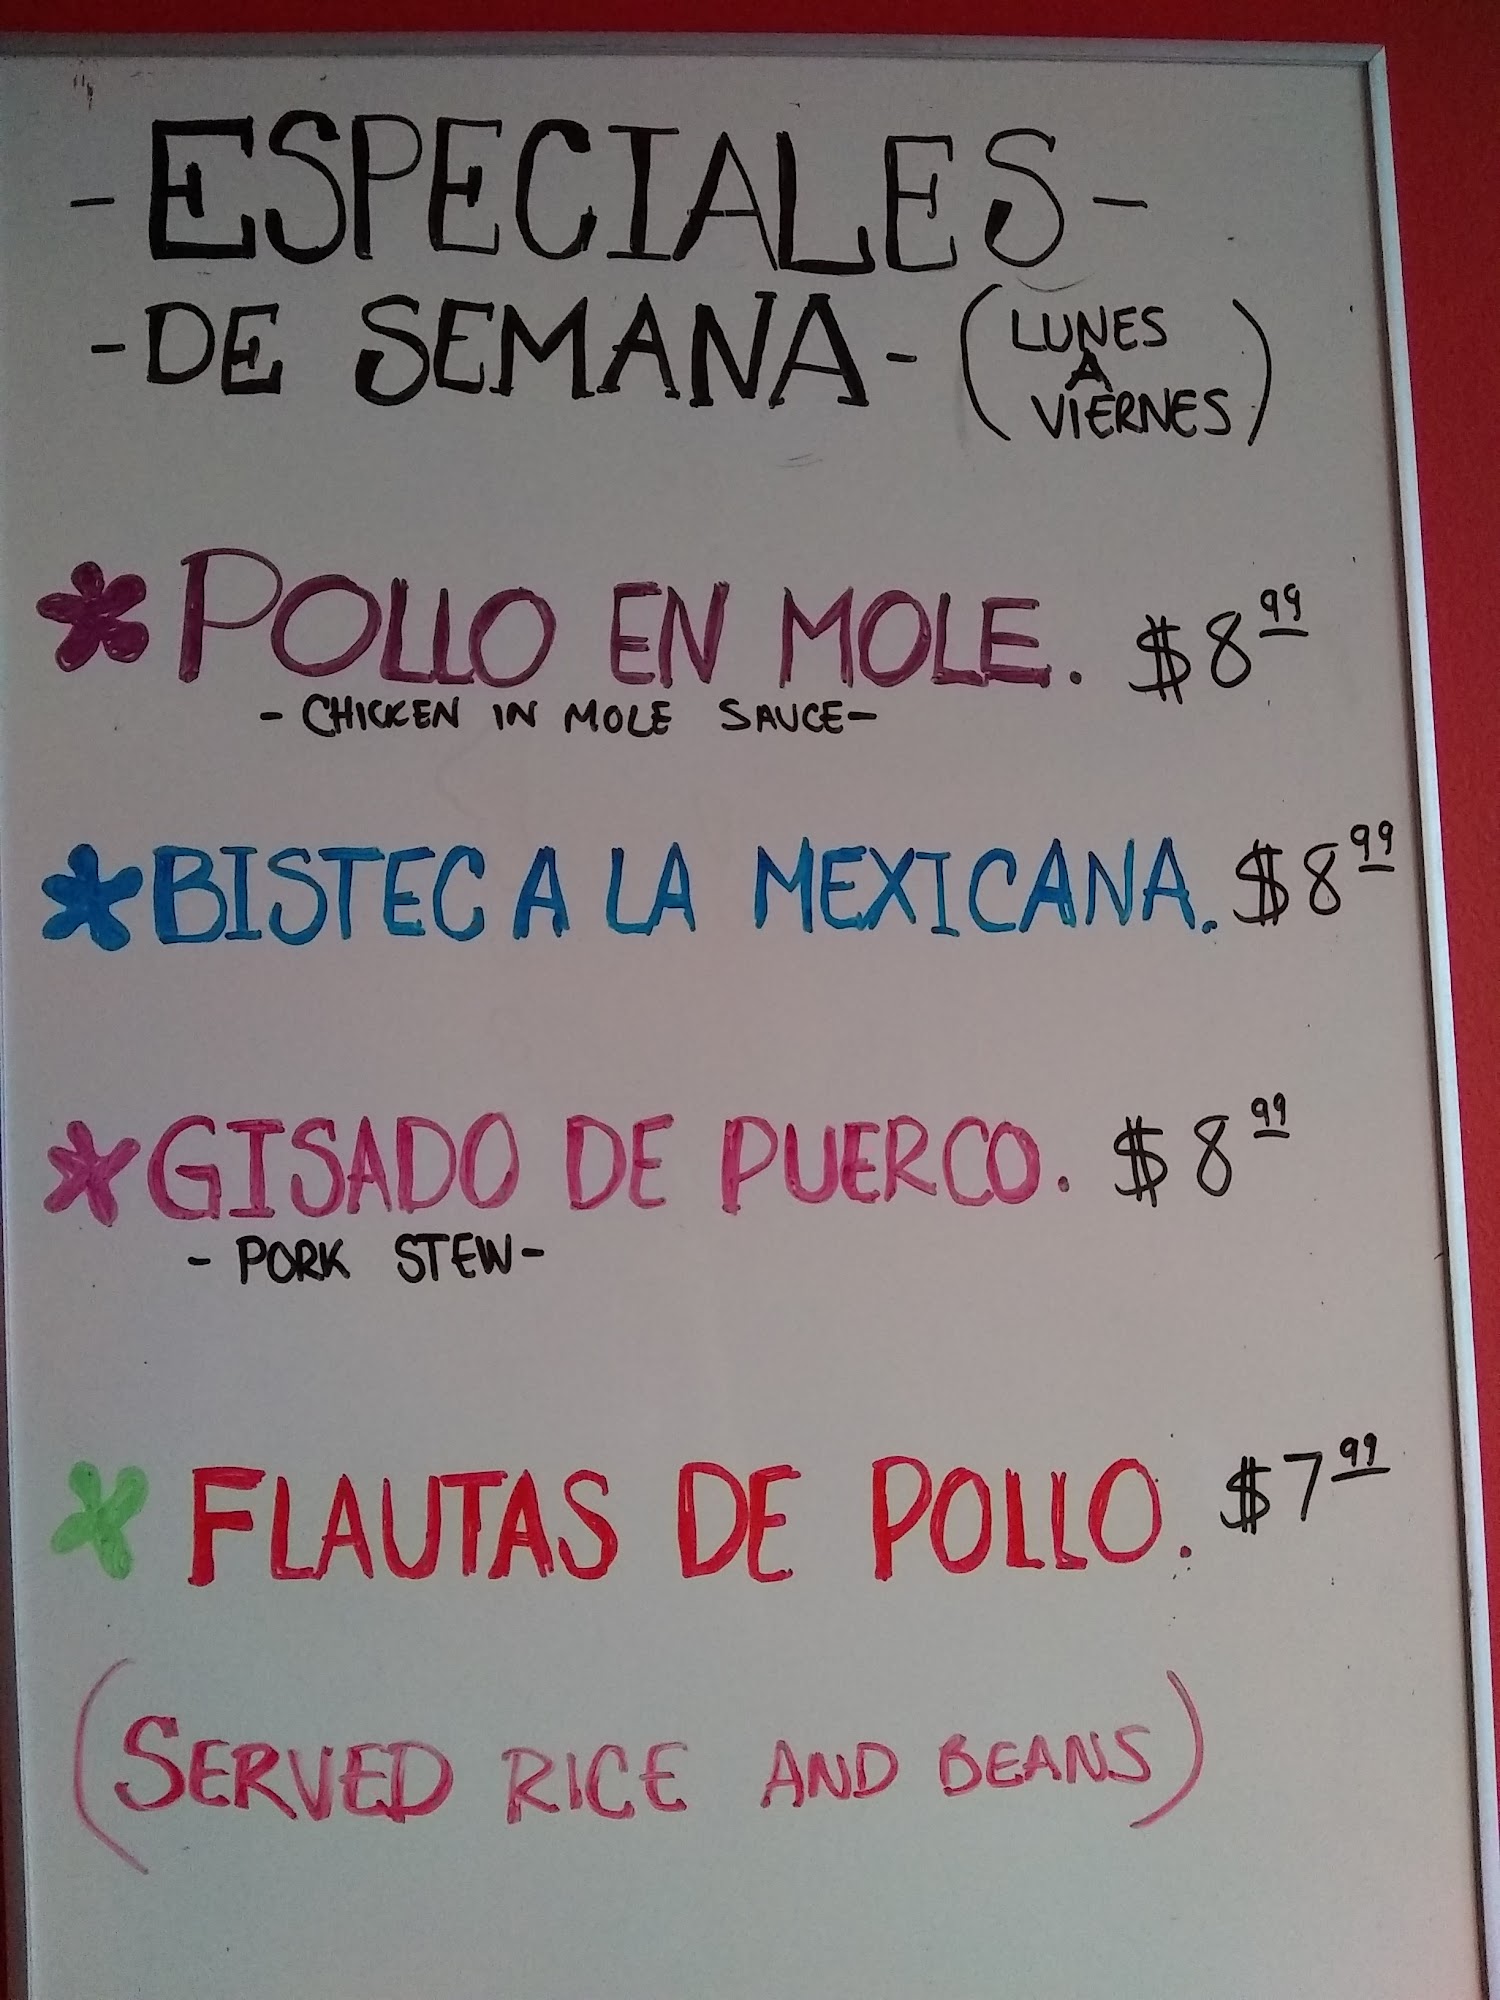 -ESPECIALES-
-DE SEMANA- (LUNES A VIERNES)
*POLLO EN MOLE. $8 99
- CHICKEN IN MOLE SAUCE-
*BISTEC A LA MEXICANA. $8 99
*GISADO DE PUERCO. $8 99
- PORK STEW-
* FLAUTAS DE POLLO. $7 99
(SERVED RICE AND BEANS)